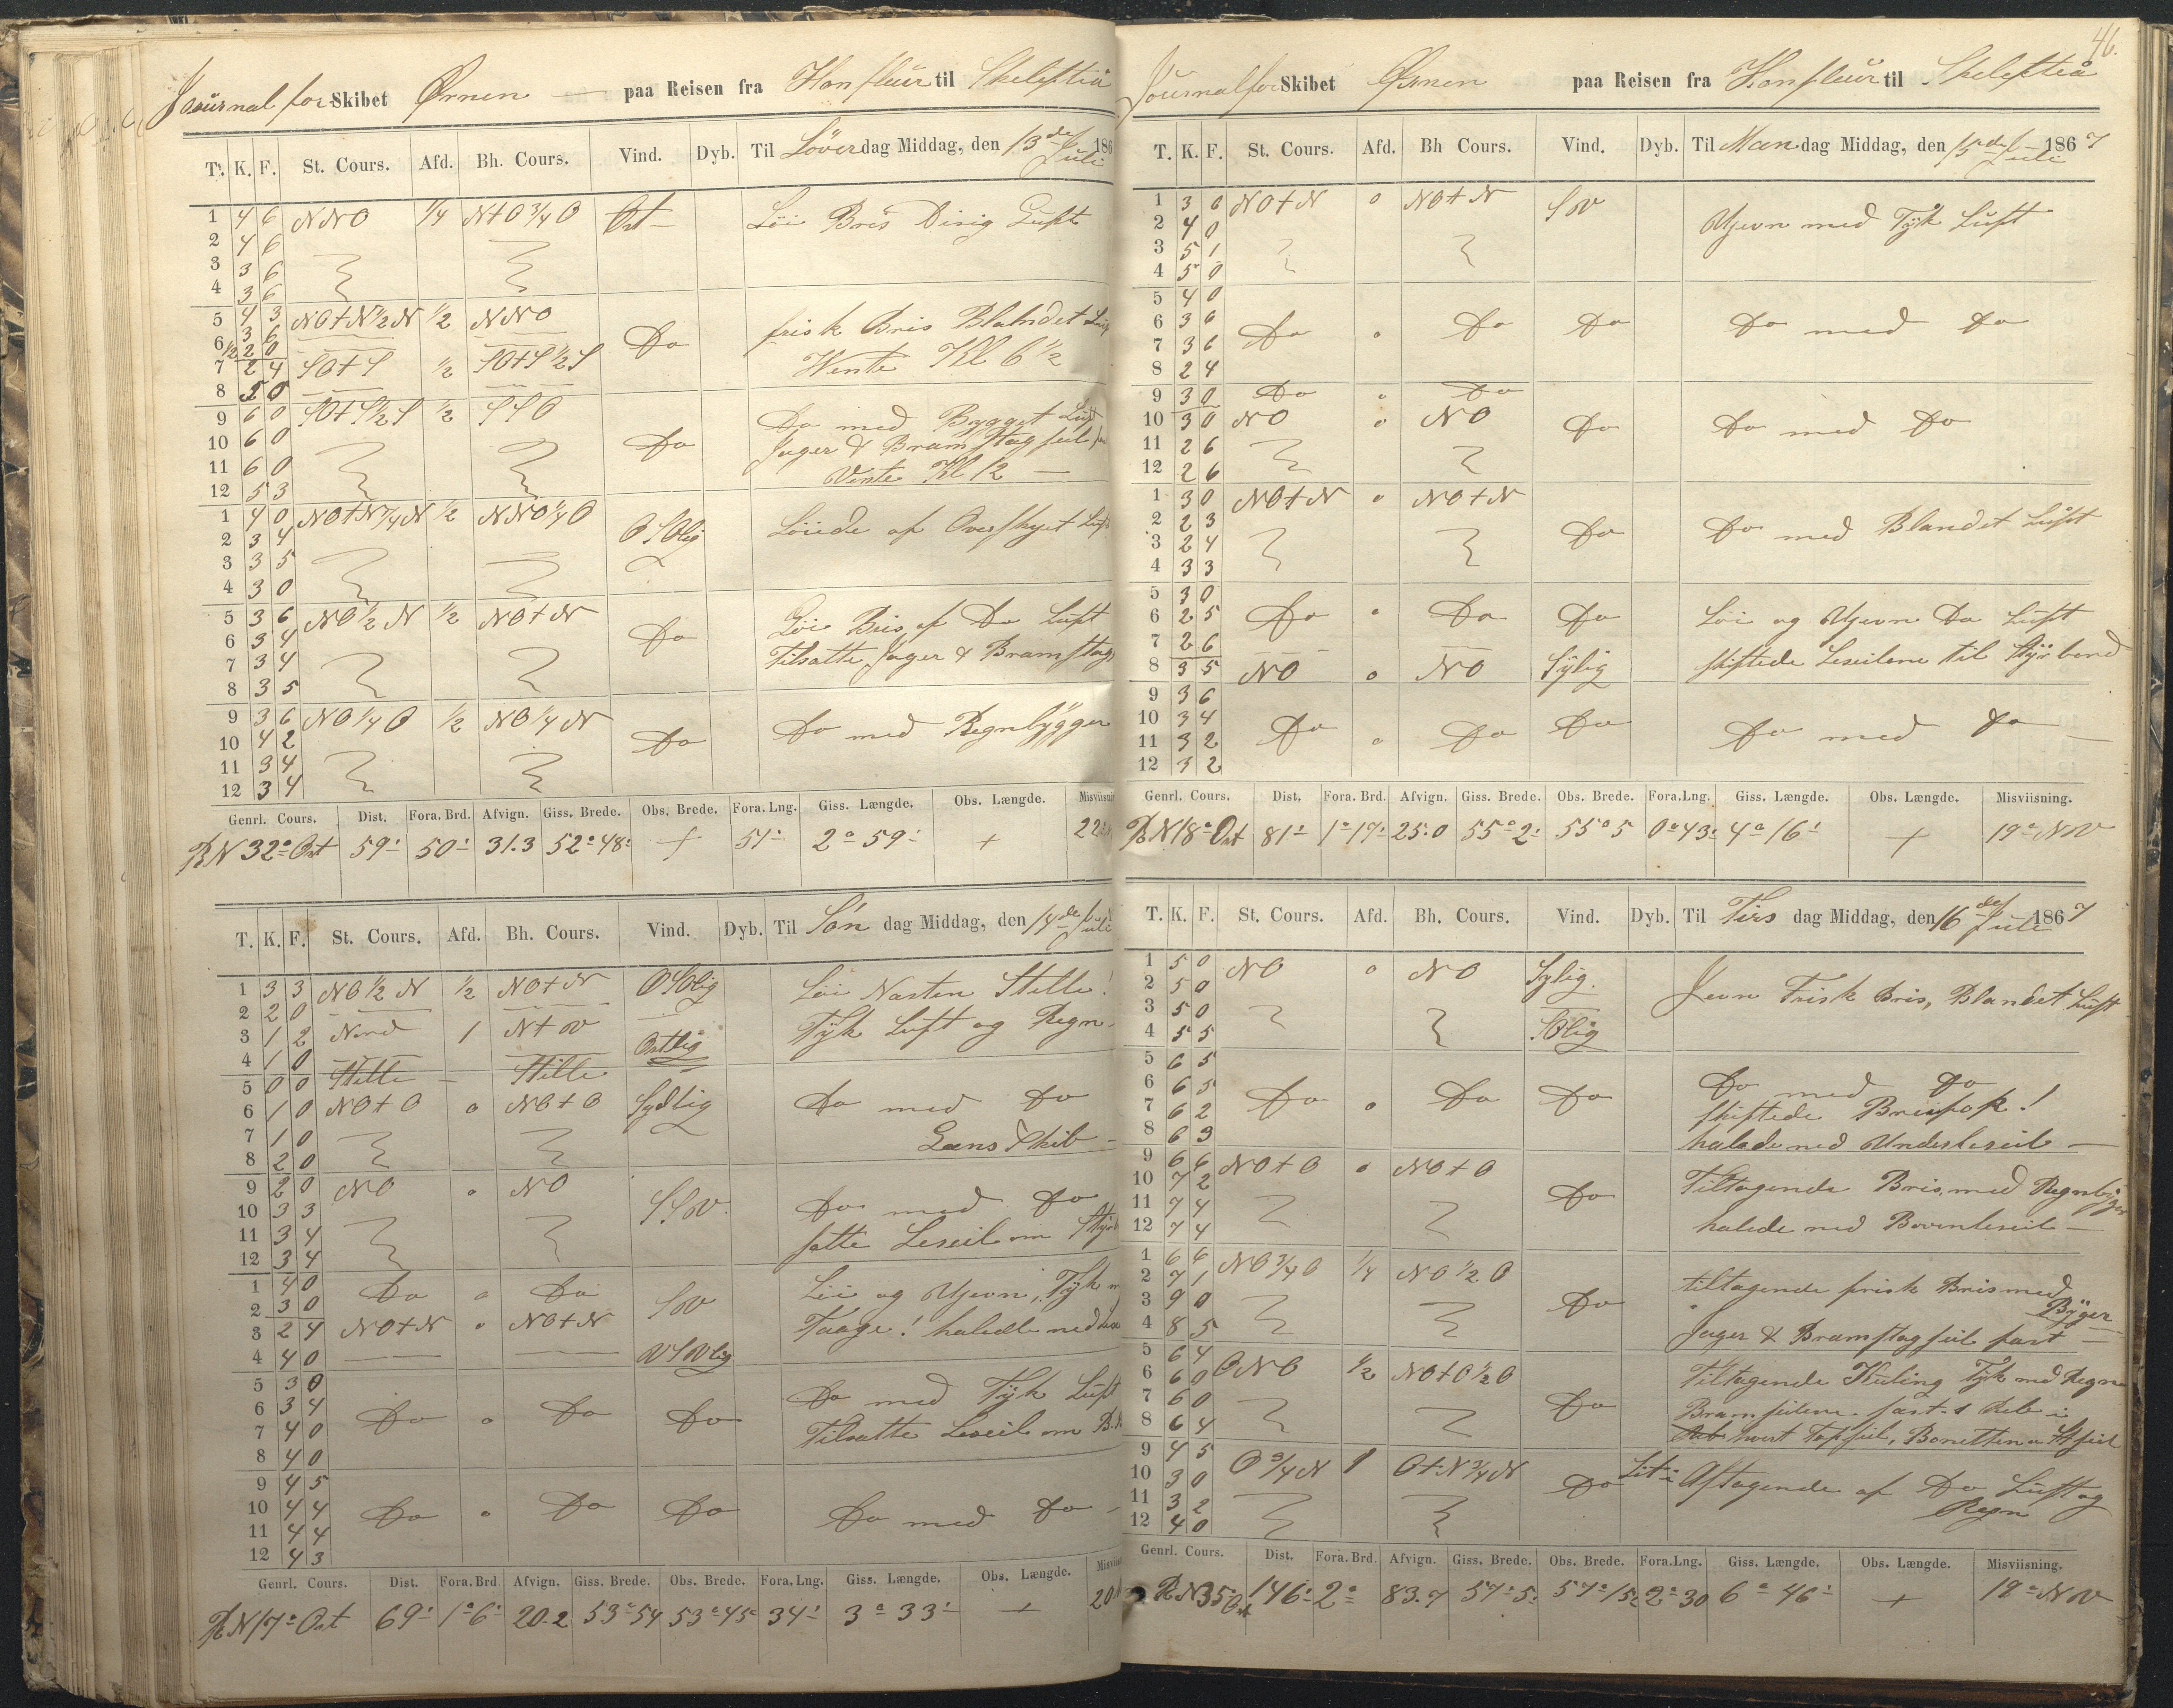 Journal for Skibet Ørnen — paa Reisen fra Honfleur til Skelefteå
T. K. F. St. Cours. Afd. Bh. Cours. Vind. Dyb. Til Löverdag Middag, den 13de Juli 186
1 4 6 NNO 1/4 N+O 3/4 O Ost — Löi Bris Disig Luft
2 4 6
3 3 6
4 3 6
5 4 3 NO+N 1/2 N 1/2 NNO Do frisk Bris Blandet
6 3 6
1/2 2 0
7 2 4 SO+S 1/2 SO+S 1/2 S Wente Kl 6 1/2
8 5 0
9 6 0 SO+S 1/2 S 1/2 SSO Do Do med Bygget Luft
10 6 0 Jager & Bramstagseil
11 6 0 Vente Kl 12 —
12 5 3
1 4 0 NO+N 1/4 N 1/2 NNO 1/4 O OSOlig Löiede af Overskyet
2 3 4
3 3 5
4 3 0
5 3 6 NO 1/2 N 1/2 NO+N Do Löi Bris af Do Luft
6 3 4 Tilsatte Jager & Bramstag
7 3 4
8 3 5
9 3 6 NO 1/4 O 1/2 NO 1/4 N Do Do med Regnbygger
10 4 2
11 3 4
12 3 4
Genrl. Cours. Dist. Fora. Brd. Afvign. Giss. Brede. Obs. Brede. Fora. Lng. Giss. Længde. Obs. Længde.
R N 32° Ost 59' 50' 31.3 52° 48' + 51' 2° 59' +
T. K. F. St. Cours. Afd. Bh. Cours. Vind. Dyb. Til Sön dag Middag, den 14de Juli
1 3 3 NO 1/2 N 1/2 NO+N OSOlig Löi Nasten Stille!
2 2 0
3 1 2 Nord 1 N+W Ostlig Tÿk Luft og Regn
4 1 0
5 0 0 Stille — Stille
6 1 0 NO+O o NO+O Sydlig Do med Do
7 1 0 Læns Skib —
8 2 0
9 2 0 NO o NO SSW Do med Do
10 3 3
11 3 4 satte Leseil om
12 3 4
1 4 0 Do o Do SW Löi og Ujevn, Tÿk
2 3 0
3 2 4 NO+N o NO+N Taage! halede ned
4 4 0 WSWlig
5 3 0 Do med Tÿk Luft
6 3 4 Do o Do Do
7 4 0 Tilsatte Leseil om
8 4 0
9 4 5
10 4 4 Do o Do Do Do med Do —
11 4 4
12 4 3
Genrl. Cours. Dist. Fora. Brd. Afvign. Giss. Brede. Obs. Brede. Fora. Lng. Giss. Længde. Obs. Længde.
R N 17° Ost 69' 1° 6' 20.2 53° 54 53° 45' 34' 3° 33' +
46.
Journal for Skibet Ørnen paa Reisen fra Honfleur til Skelefteå
T. K. F. St. Cours. Afd. Bh Cours. Vind. Dyb. Til Man dag Middag, den 15de Juli 1867
1 3 6 NO+N o NO+N SW Ujevn med Tÿk Luft
2 4 0
3 5 1
4 5 0
5 4 0
6 3 6 Do o Do Do Do med Do
7 3 6
8 2 4
9 3 0 Do o Do
10 3 0 NO o NO Do Do med Do
11 2 6
12 2 6
1 3 0 NO+N o NO+N
2 2 3 Do Do med Blandet Luft
3 2 4
4 3 3
5 3 0
6 2 5 Do o Do Do Löi og Ujevn Do Luft
7 2 6 skiftede Leseilene til Stÿrbord
8 3 5 NO o NO Sÿlig
9 3 6
10 3 4 Do o Do Do Do med Do —
11 3 2
12 3 2
Genrl. Cours. Dist. Fora. Brd. Afvign. Giss. Brede. Obs. Brede. Fora. Lng. Giss. Længde. Obs. Længde. Misviisning.
R N 18° Ost 81' 1° 17' 25.0 55° 2' 55° 5 0° 43' 4° 16' + 19° NW
T. K. F. St. Cours. Afd. Bh. Cours. Vind. Dyb. Til Tirs dag Middag, den 16de Juli 1867
1 5 0 NO o NO Sylig. Jevn Frisk Bris, Blandet Luft
2 5 0
3 5 0 SOlig
4 5 5
5 6 5 Do med Do
6 6 5 Do o Do Do skiftede
7 6 2
8 6 3 halade ned Underleseil —
9 6 6 NO+O o NO+O Do Tiltagende Bris, med Regnbyger
10 7 2
11 7 4 halede ned Bovenleseil —
12 7 4
1 6 6 NO 3/4 O 1/4 NO 1/2 O Do tiltagende frisk Bris med
2 7 1 Bÿger
3 9 0
4 8 5 Jager & Bramstagseil fast —
5 6 4 Tiltagende Kuling Tÿk med Regn
6 6 0 ONO 1/2 NO+O 1/2 O Do
7 6 0 Bramseilene fast 1 Reb i
8 6 4 hvert Topseil, Bonetten
9 4 5 O 3/4 N 1 O+N 3/4 N Do Aftagende af Do Luft og
10 3 0 Regn
11 3 2
12 4 0
Genrl. Cours. Dist. Fora. Brd. Afvign. Giss. Brede. Obs. Brede. Fora. Lng. Giss. Længde. Obs. Længde. Misviisning.
R N 35 Ost 146' 2° 83.7 57° 5' 57° 15' 2° 30 6° 46' + 19° NW